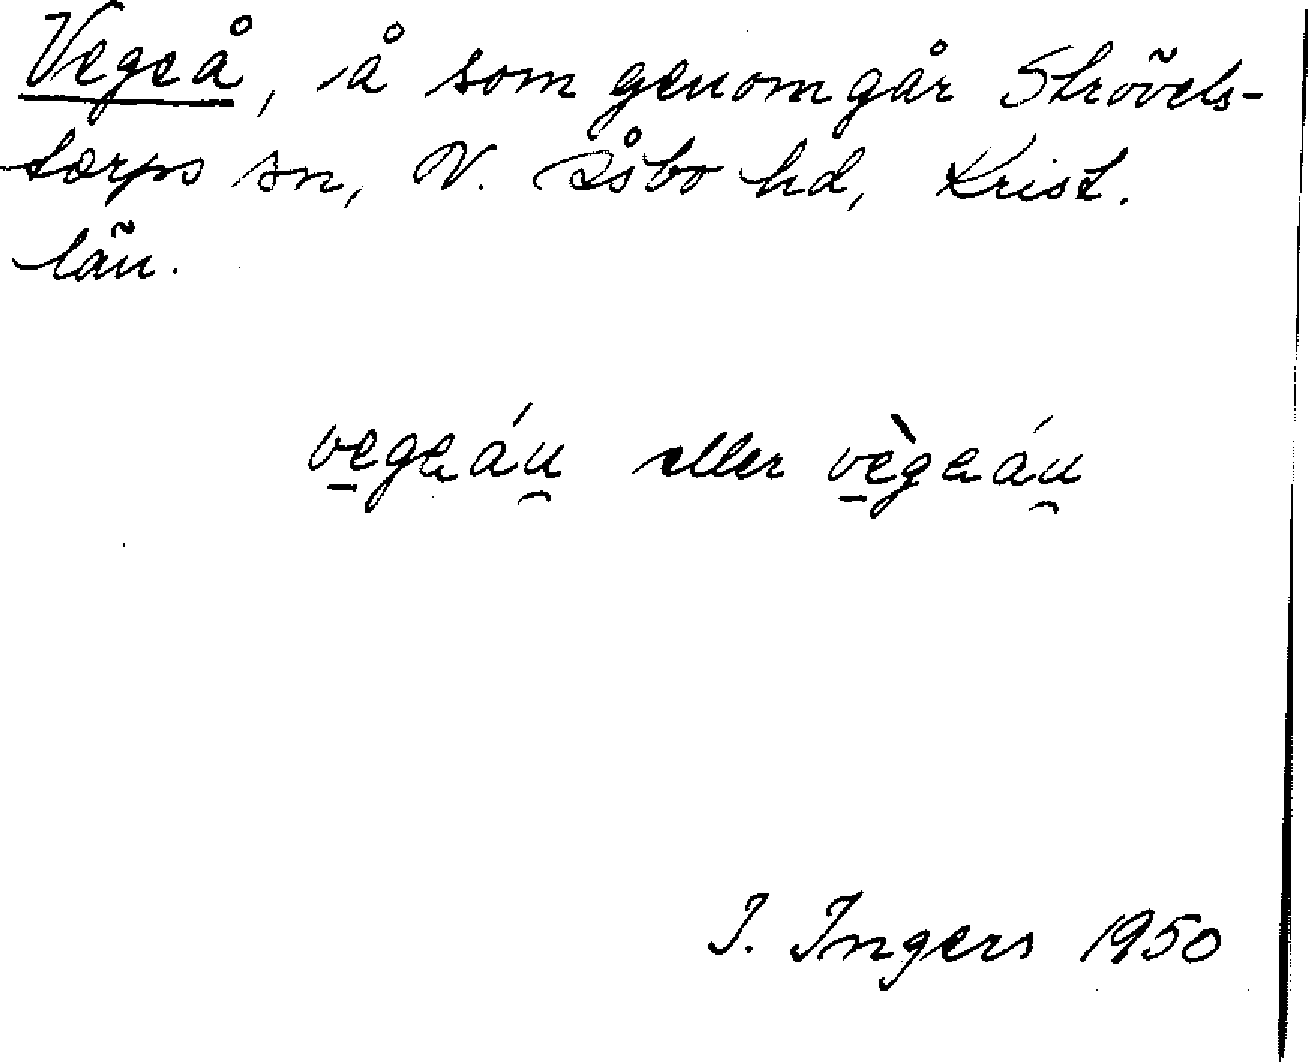 Vegeå, å som genomgår Strövels-
torps sn, V. Åsbo hd, Krist.
län.
vegeáu eller vègeáu
I. Ingers 1950